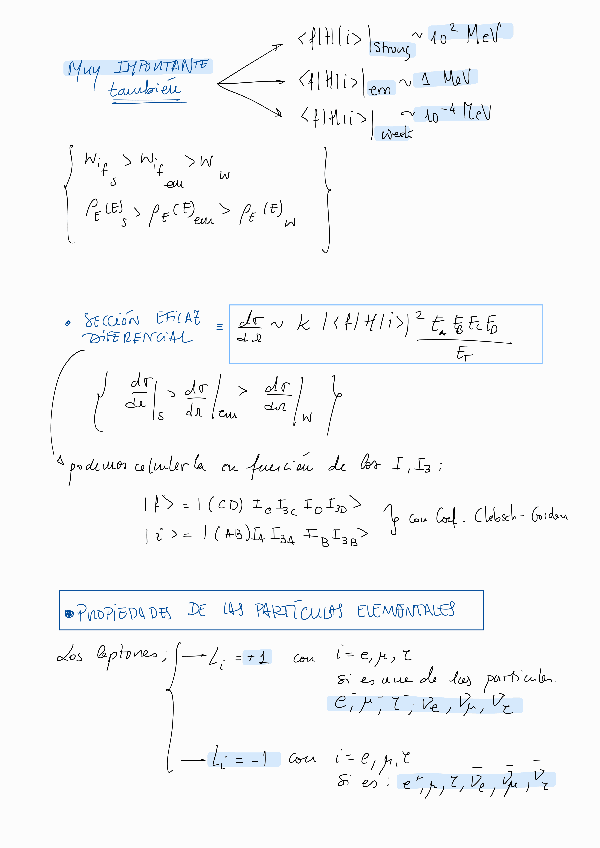 MUY IMPORTANTE
también
<f|H|i>|strong ~ 10² MeV
<f|H|i>|em ~ 1 MeV
<f|H|i>|weak ~ 10⁻⁴ MeV
Wif s > Wif em > W w
ρE(E)s > ρE(E)em > ρE(E)w
• SECCIÓN EFICAZ
DIFERENCIAL ≡ dσ/dΩ ~ K |<f|H|i>|² EA EB EC ED / ET
{ dσ/dΩ|s > dσ/dΩ|em > dσ/dΩ|w }
podemos calcularla en función de los I, I3 :
|f> = |(CD) IC I3C ID I3D>
|i> = |(AB) IA I3A IB I3B>
} con Coef. Clebsch-Gordan
• PROPIEDADES DE LAS PARTÍCULAS ELEMENTALES
Los leptones: { → Li = +1 con i = e, μ, τ
si es una de las partículas:
e⁻, μ⁻, τ⁻, νe, νμ, ντ
→ Li = -1 con i = e, μ, τ
si es: e⁺, μ, τ, ν̄e, ν̄μ, ν̄τ